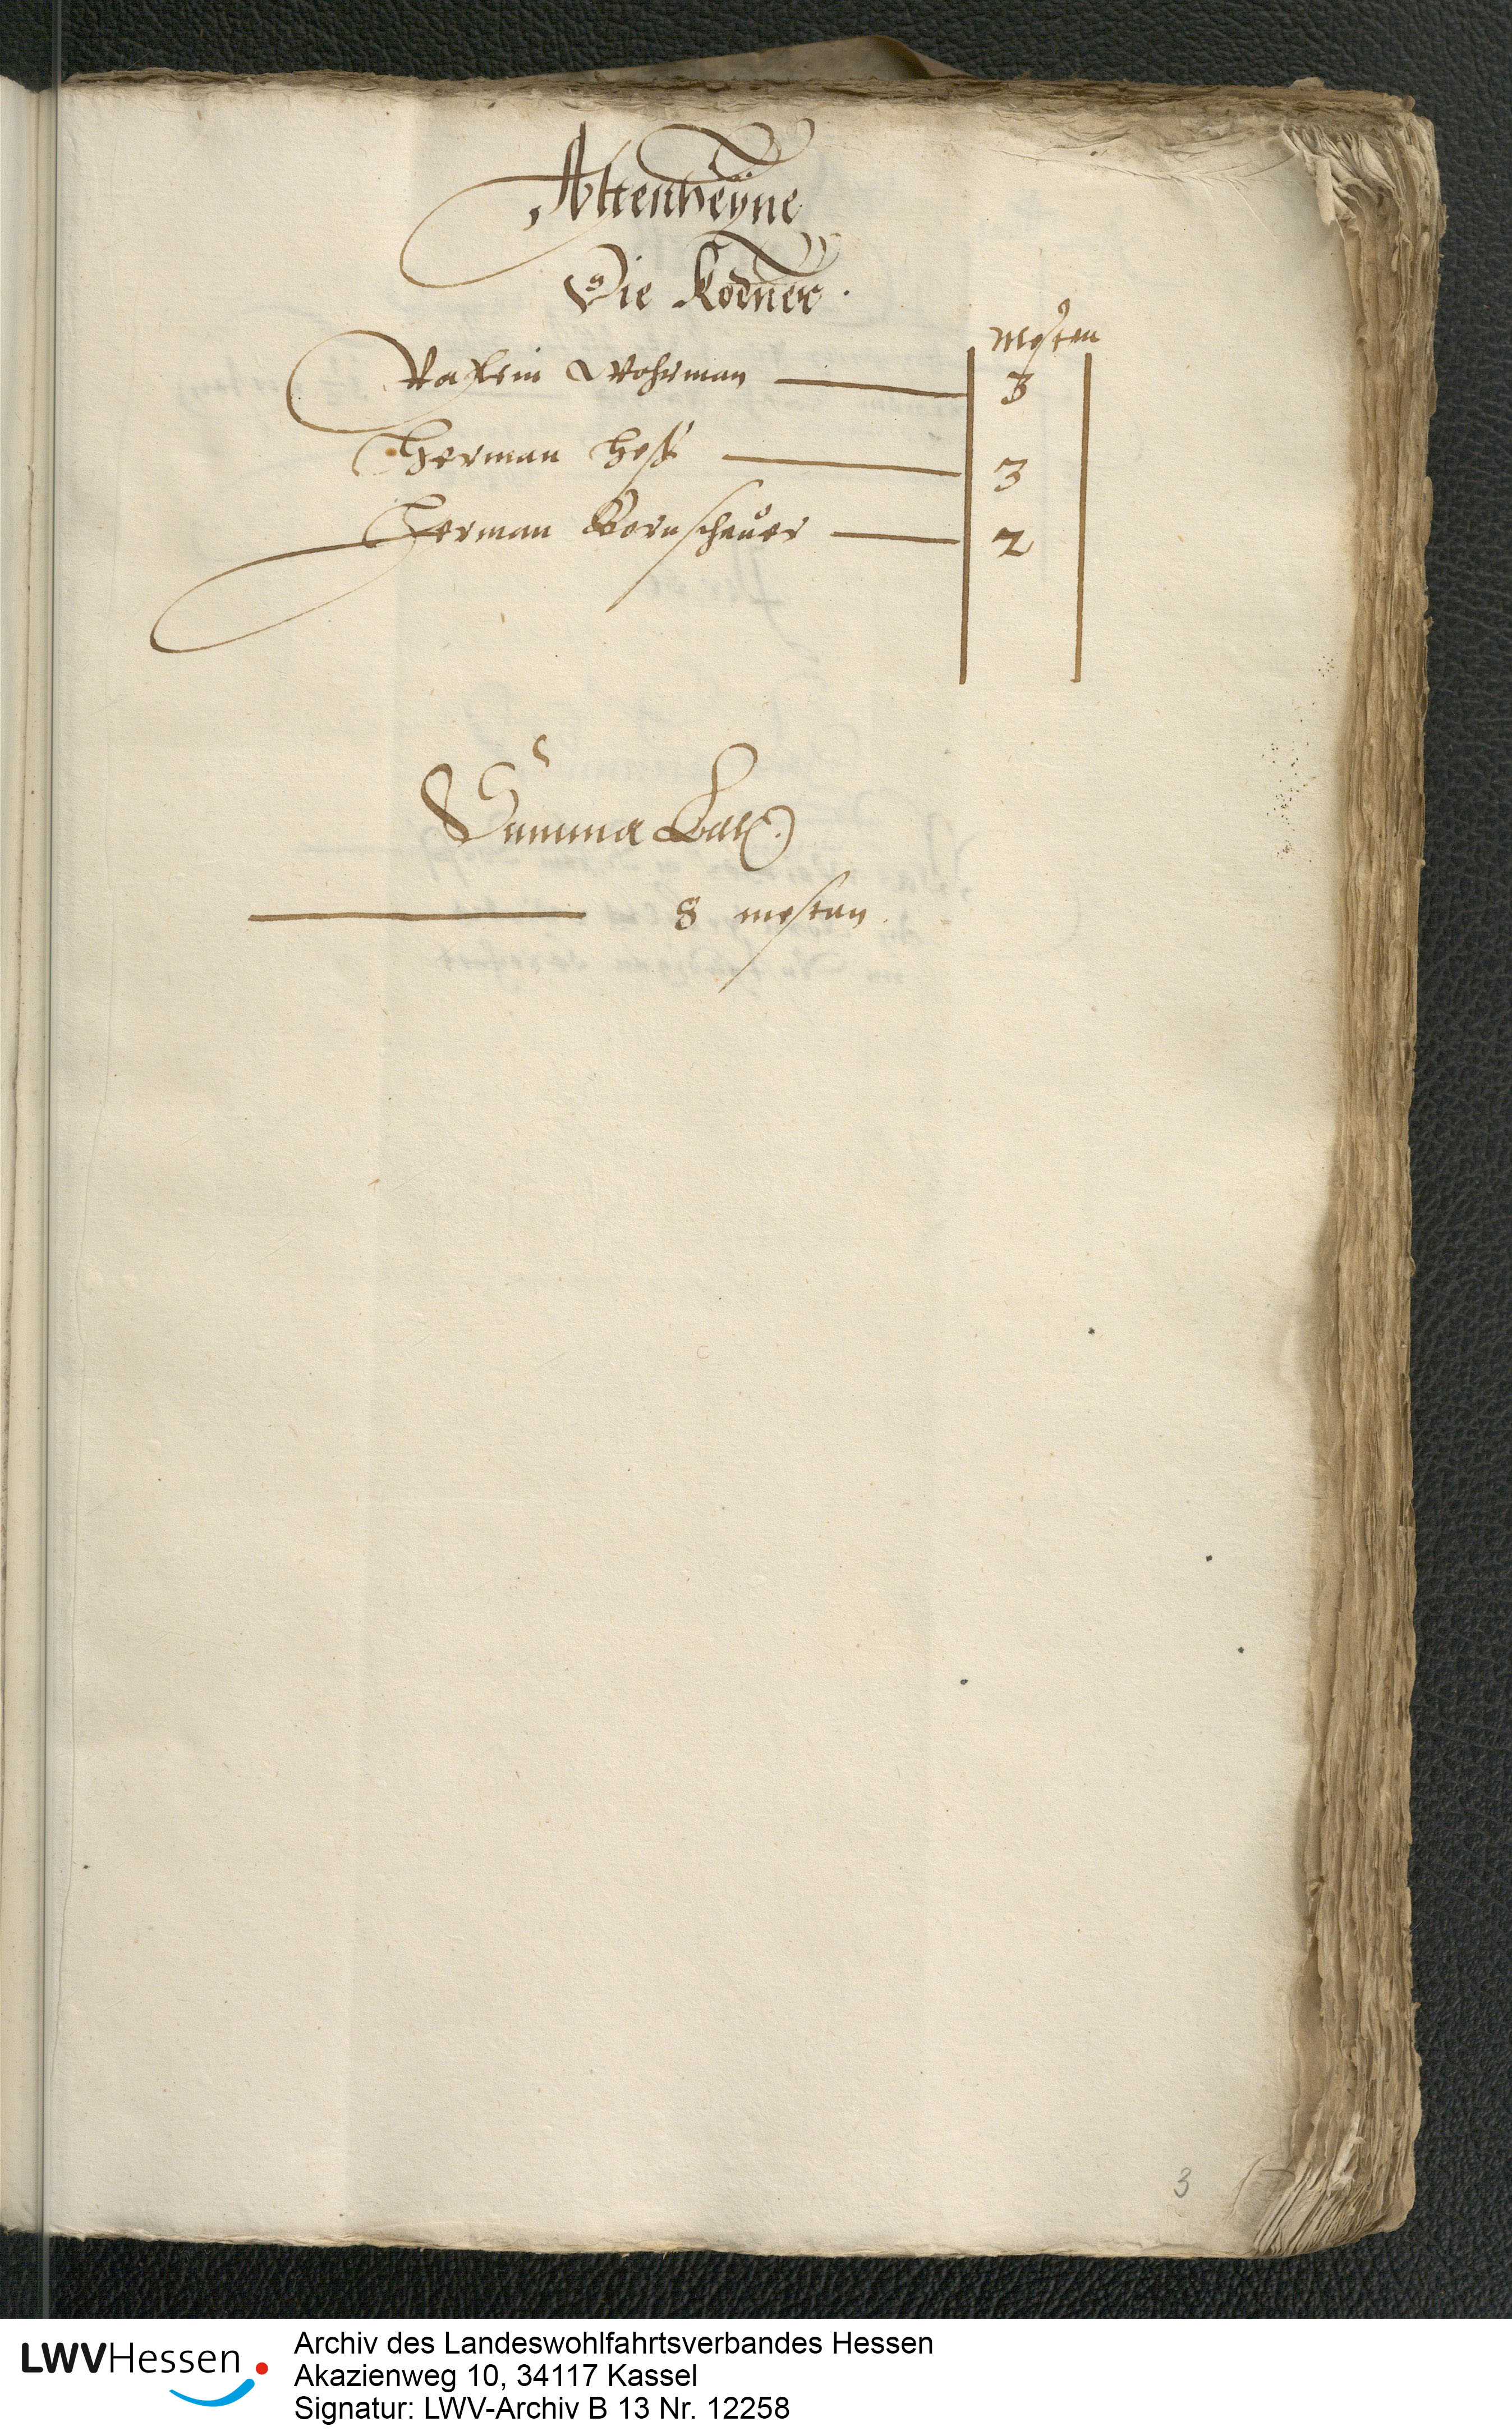 Altenheyne
Die Kodner.
Mesten
Wohrman 3
Herman Heß 3
Herman Bornscheuer 2
Summa
8 mesten.
3
LWVHessen
Archiv des Landeswohlfahrtsverbandes Hessen
Akazienweg 10, 34117 Kassel
Signatur: LWV-Archiv B 13 Nr. 12258